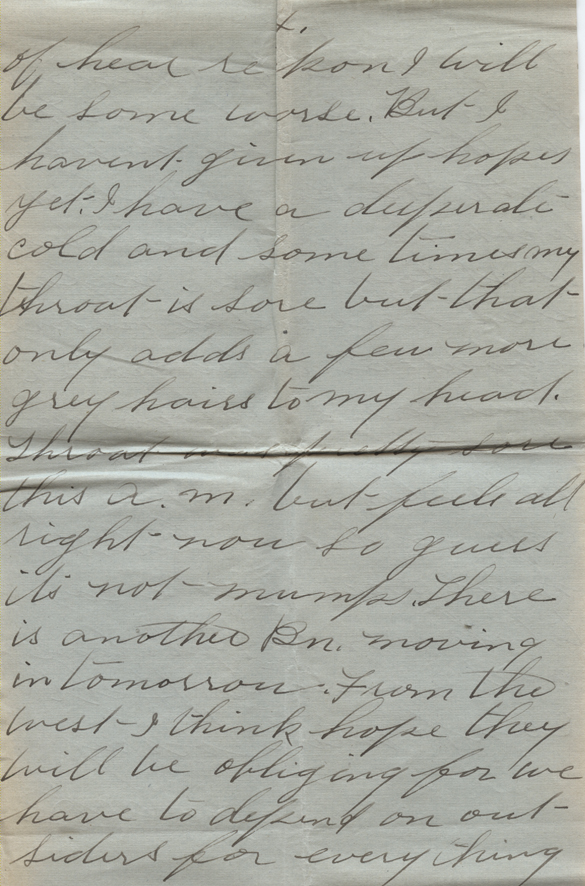 4.
of hear reckon I will
be some worse. But I
havent given up hopes
yet. I have a desperate
cold and some times my
throat is sore but that
only adds a few more
grey hairs to my head.
Throat was pretty sore
this a.m. but feels all
right now so guess
its not mumps. There
is another Bn. moving
in tomorrow. From the
west I think hope they
will be obliging for we
have to depend on out-
siders for everything